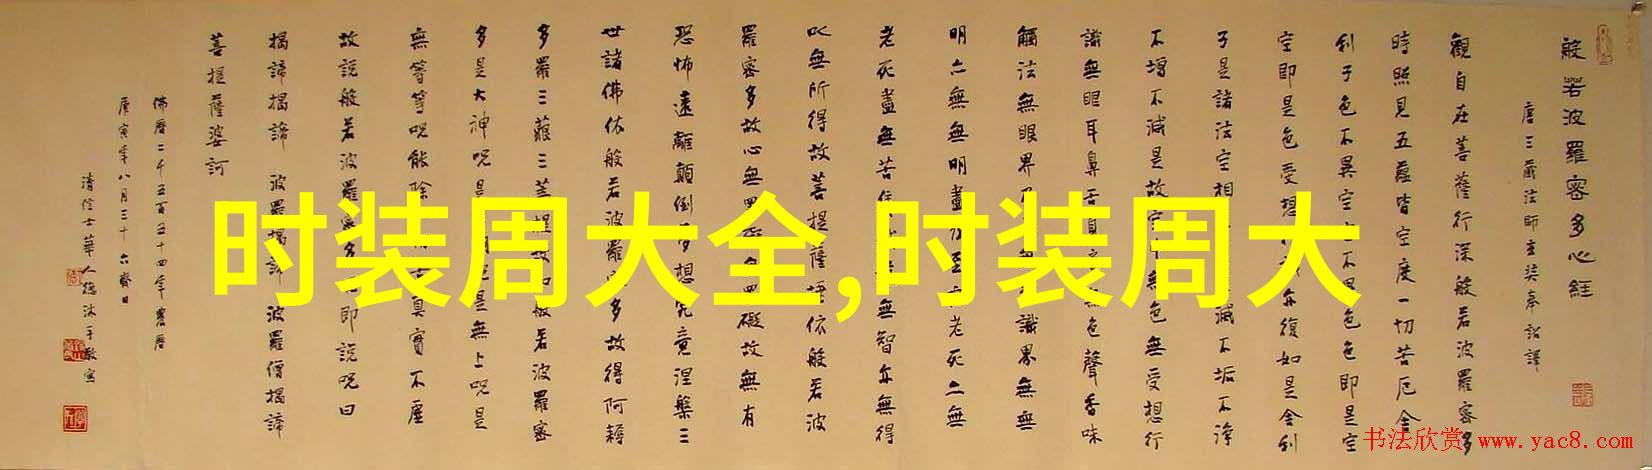 般若波羅密多心經
唐三藏法師玄奘奉詔譯
觀自在菩薩行深般若波羅密多
時照見五蘊皆空度一切苦厄舍
利子色不異空空不異色色即是空
空即是色受想行亦復如是舍利
子是諸法空相滅不垢不淨
不增不減是故空中無色無受想行
識無眼耳鼻舌身意無色聲香味
觸法無眼界乃識界無無
明亦無無明盡乃至老死亦無
老死盡無苦集無智亦無得
以無所得故菩提薩埵依般若波
羅密多故心無罣礙無罣礙故無有
恐怖遠離顛倒夢想究竟涅槃三
世諸佛依般若波羅密多故得阿耨
多羅三藐三菩提故知般若波羅密
多是大神咒是明咒是無上咒是
無等等咒能除真實不虛
故說般若波羅密多咒即說咒曰
揭諦揭諦 波羅揭諦 波羅僧揭諦
菩提薩婆訶
佛曆二千五百五十四年農曆
庚寅年八月三十六齋日
清信士華人德沐手敬寫
时装周大全,时装周大
书法欣赏 www.yac8.com